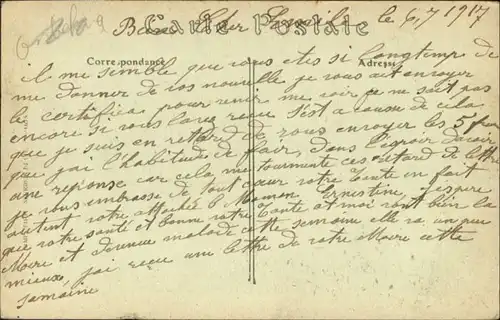 Carte Postale
le 6/7 1917
Correspondance Adresse
il me semble que vous etes si longtemps de
me donner de vos nouvelle je vous ait envoyer
le certifica pour venir me voir je ne sait pas
encore si vous lavez recue s'est a cause de cela
que je suis en retard de vous envoyer les 5 f
que j'ai l'habitude de fair, dans l'espoir davoir
une reponse car cela me tourmente ces retard de lettre
je vous embrasse de tout cœur votre Tante en fait
autent votre Maman Ernestine, j'espere
que votre santé et bonne votre Tante et moi vont bien la
Mere et devenue malade cette semaine elle va un peu
mieux, j'ai recu une lettre de votre Mere cette
samaine